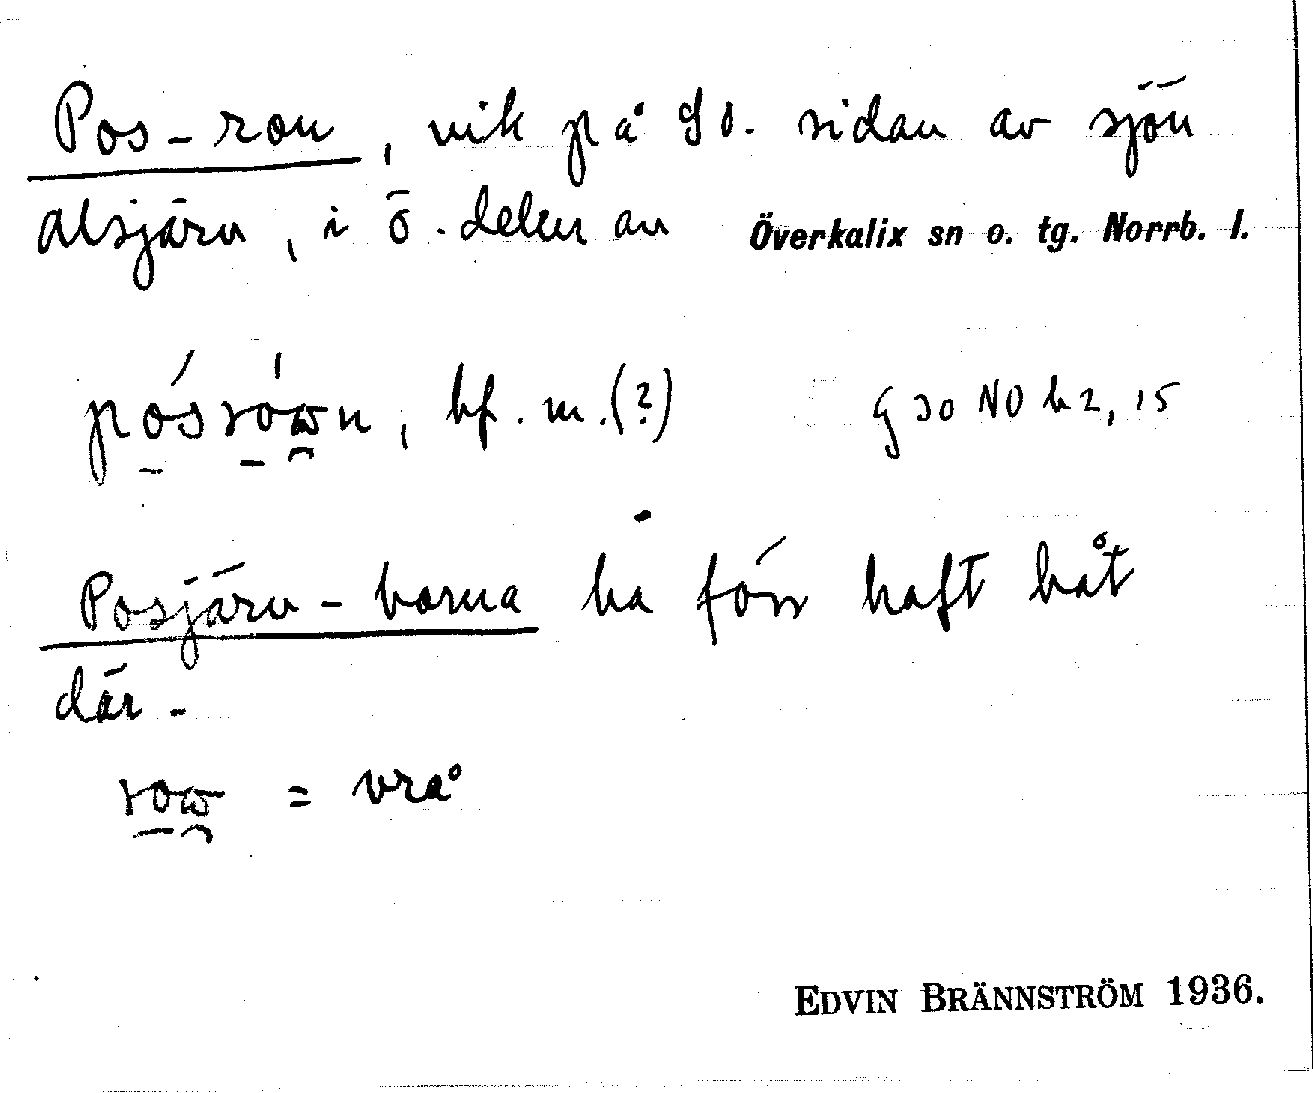 Pos-rou, vik på SO. sidan av sjön
Alsjärv, i ö. delen av Överkalix sn o. tg. Norrb. l.
pósrówn, bf. m. (?) G 30 NO b 2, 15
Posjärv-barna ha förr haft båt
där.
row = vrå
EDVIN BRÄNNSTRÖM 1936.